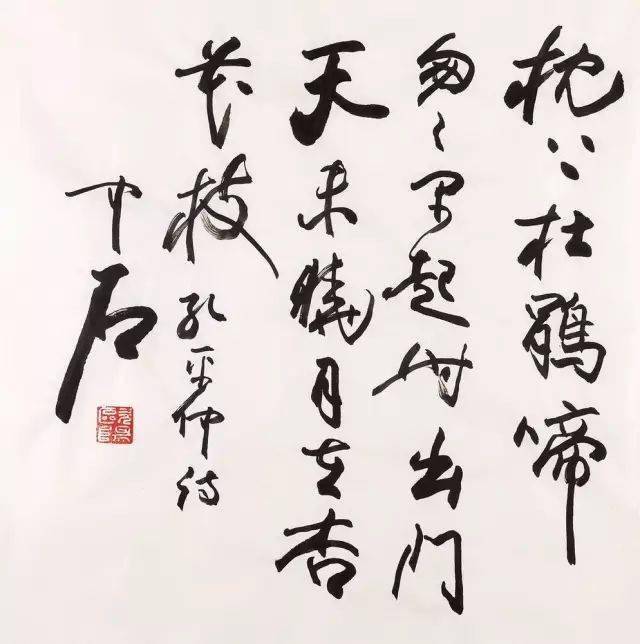 枕上杜鵑啼
匆匆早起时出门
天未曉月在杏
花枝 孔平仲诗
中石